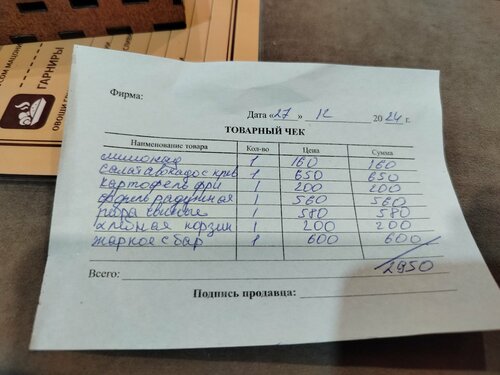 ГАРНИРЫ
ОВОЩИ
Фирма:
Дата «27» 12 2024 г.
ТОВАРНЫЙ ЧЕК
Наименование товара Кол-во Цена Сумма
лимонад 1 160 160
салат авокадо с крев 1 650 650
картофель фри 1 200 200
форель радужная 1 560 560
пара свиные 1 580 580
хлебная корзин 1 200 200
жаркое с бар 1 600 600
Всего: 2950
Подпись продавца: